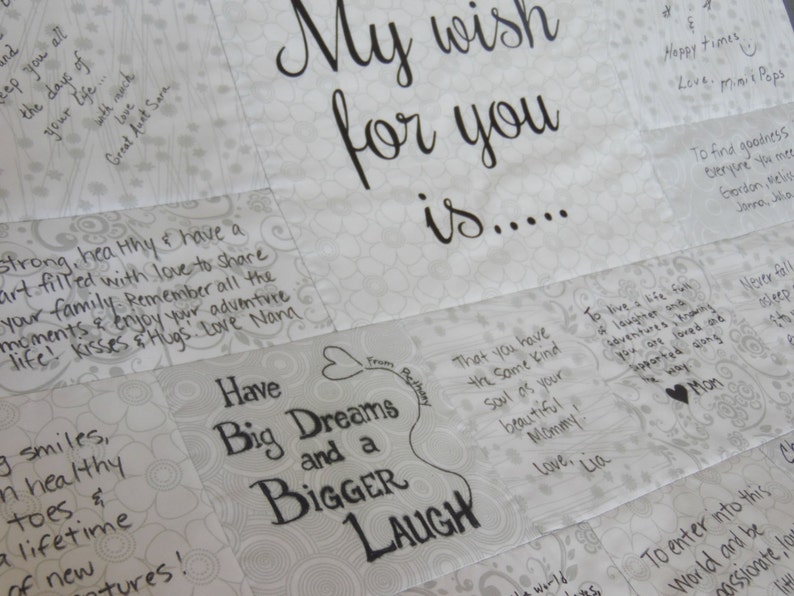 keep you all
the days of
your life...
with much
love
Great Aunt Sara
My wish
for you
is.....
&
Happy times
Love, Mimi & Pops
To find goodness
everyone you mee
Gordon, Meliss
Jonna, Julia
strong, healthy & have a
art filled with love to share
your family. Remember all the
moments & enjoy your adventure
life! Kisses & Hugs' Love Nana
From Bethany
Have
Big Dreams
and a
Bigger
Laugh
That you have
the same kind
soul as your
beautiful
Mommy!
Love,
Lia
To live a life full
of laughter and
adventures knowing
you are loved and
supported along
the way.
♥ Mom
Never fal
asleep
smiles,
healthy
toes &
a lifetime
of new
To enter into this
world and be
passionate, lov